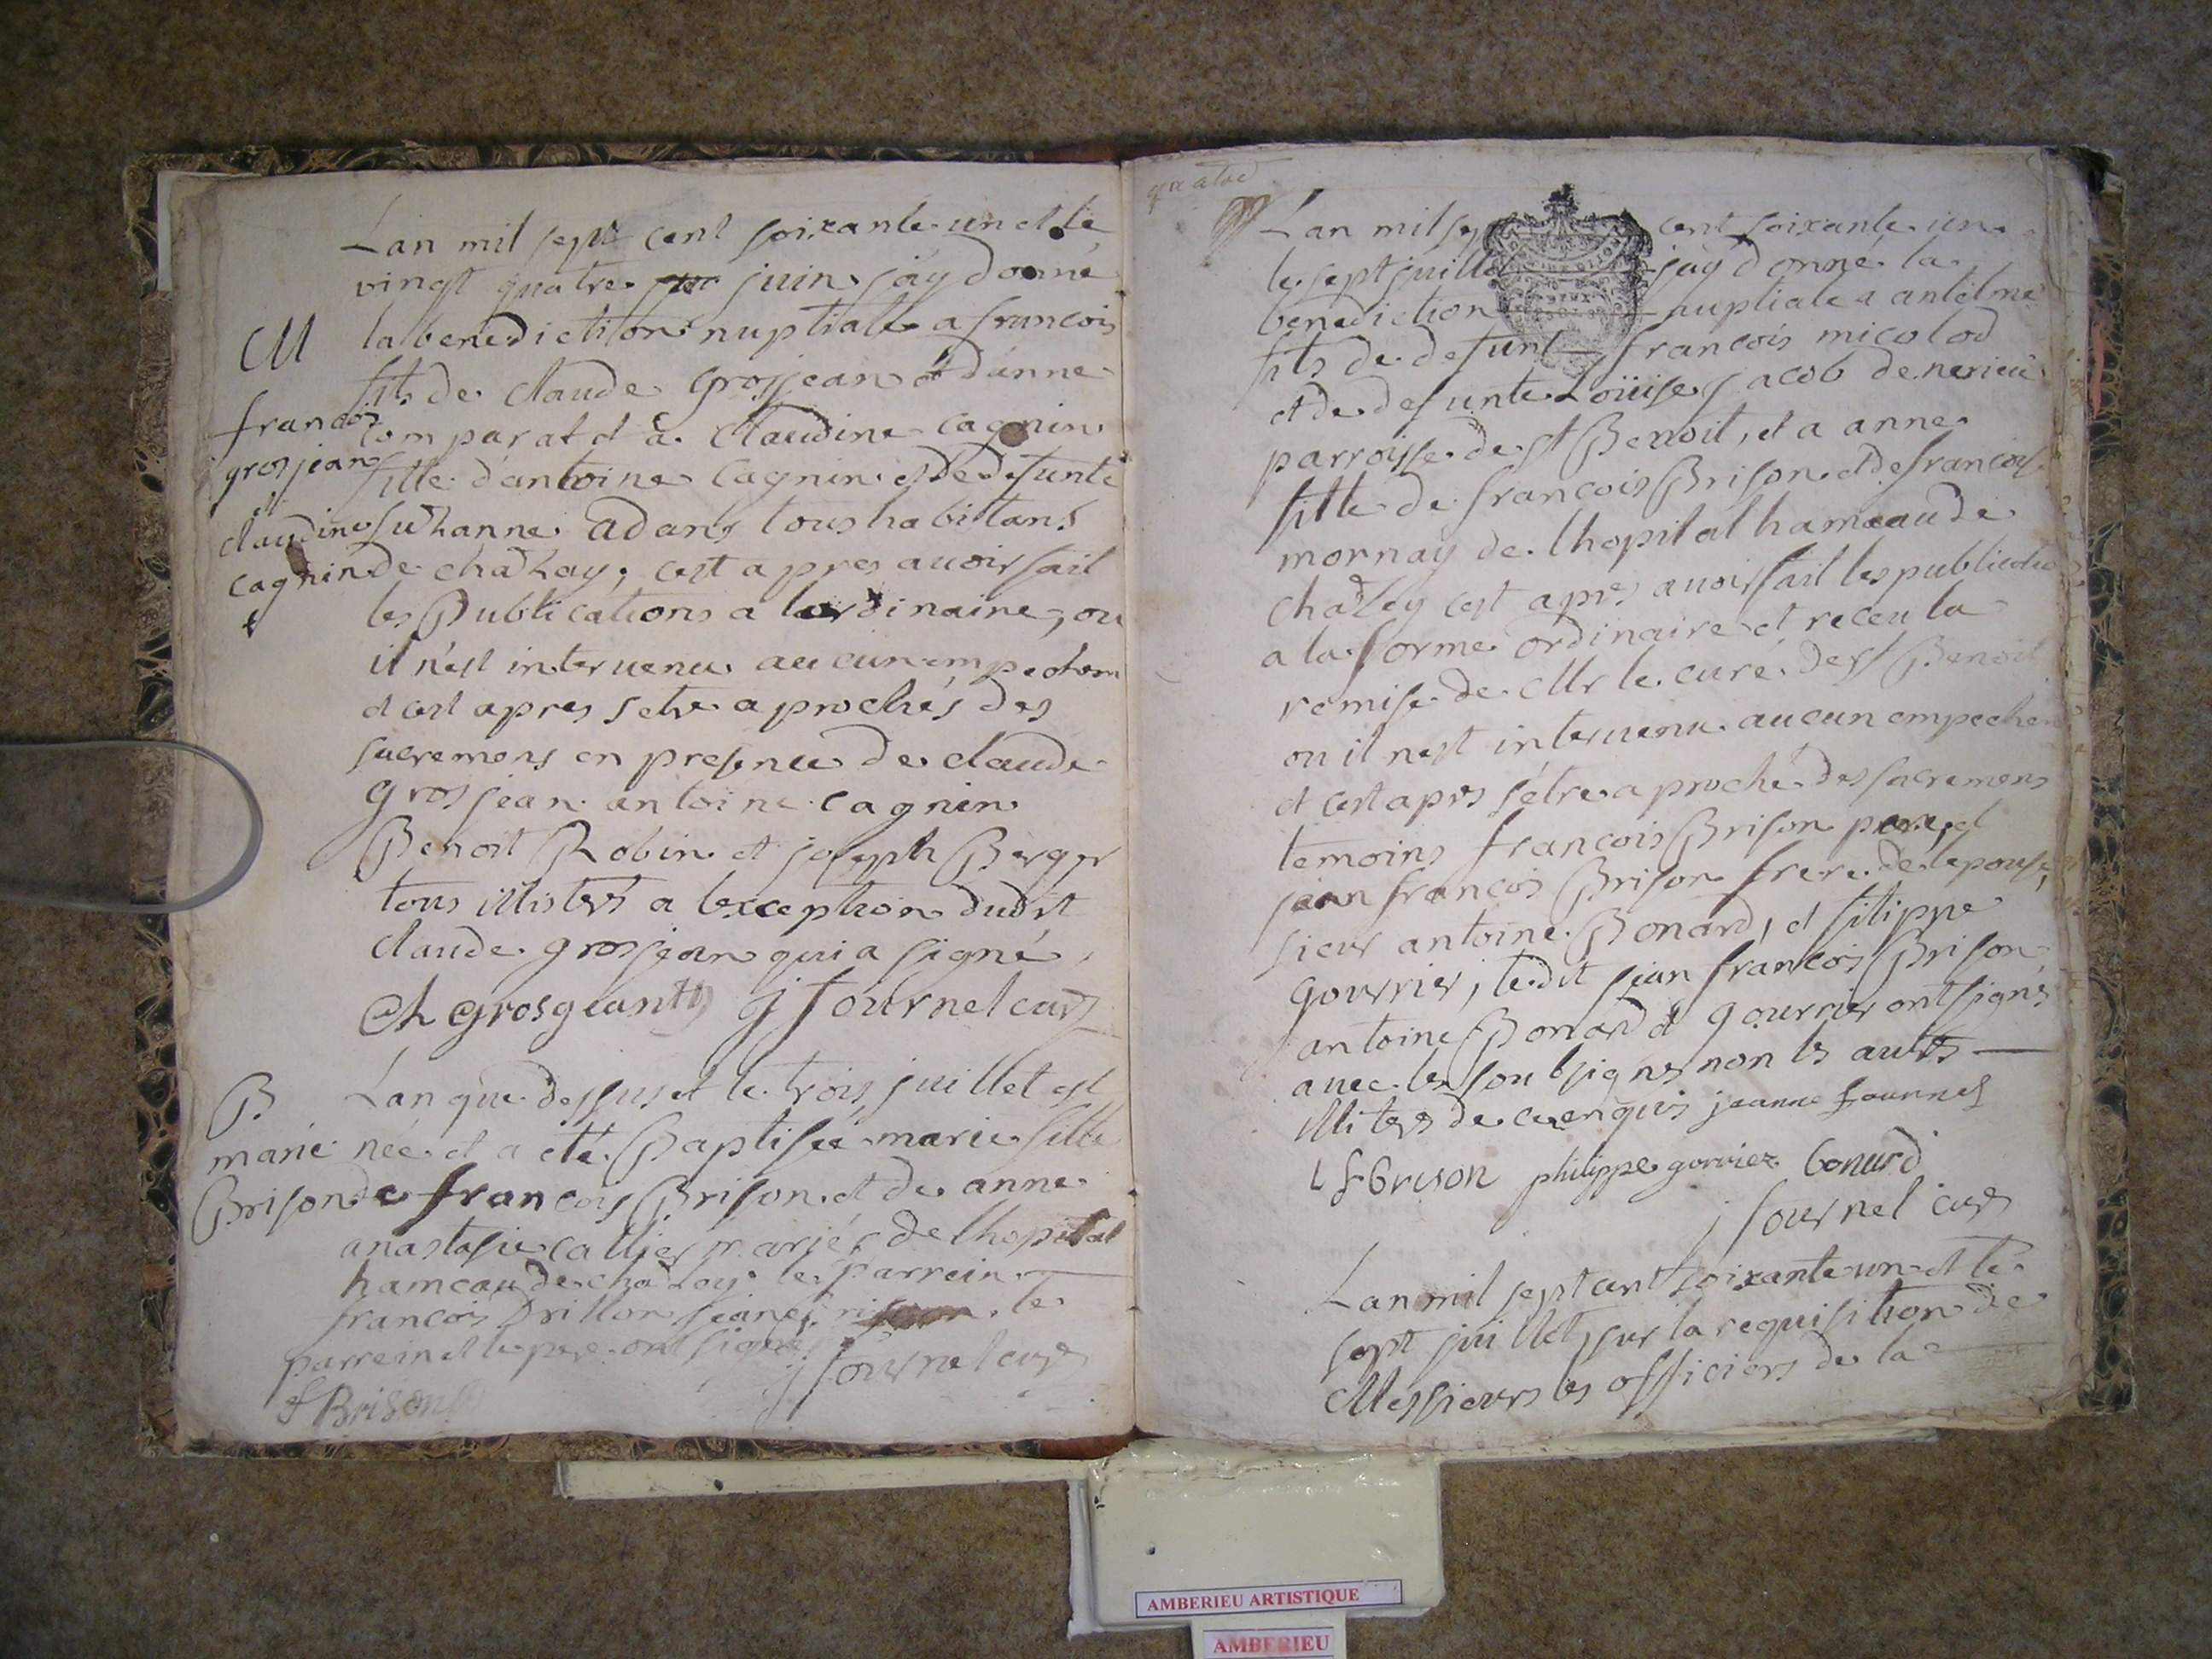 Lan mil sept cent soixante un et le
vingt quatre juin j'ay donné
M
la benediction nuptialle a francois
fils de claude grosjean et d'anne
francois
comparat et a claudine cagnin
grosjean
fille d'antoine cagnin et de defunte
et
claudine
suzanne adans tous habitans
cagnin
de chazay, cest apres avoir fait
les Publications a lordinaire, ou
il n'est intervenu aucun empechem
et cest apres setre aprochés des
sacremens en presence de claude
grosjean antoine cagnin
Benoit Robin et joseph Berger
tous illisters a lexception dudit
claude grosjean qui a signé
grosgeant j fournel curé
B
Lan que dessus et le trois juillet est
marie
née et a eté Baptisée marie fille
Brison
de francois Brison et de anne
anastasie mariés de lhopital
hameau de chazey le parrein
francois le
parrein et le pere ont signé
f Brison j fournel curé
Lan mil sept cent soixante un
le sept juillet j'ay donné la
benediction nuptiale a antelme
fils de defunt francois micolod
et de defunte Loüise jacob de nerieu
parroisse de st Benoit, et a anne
fille de francois Brison et de francoise
mornay de lhopital hameau de
chazey cest apres avoir fait les publications
a la forme ordinaire et receu la
remise de Mr le curé de st Benoit
ou il nest intervenu aucun empechem
et cest apres sétre aproché des sacremens
temoins francois Brison pere, et
jean francois Brison frere de lepouse,
sieur antoine Bonard, et filippe
gourrier, ledit jean francois Brison
antoine Bonard et gourrier ont signés
avec les soubsignés non les autres
illiters de ce enquis jeanne fournel
Brison philippe gorrier bonard
j fournel curé
Lan mil sept cent soixante un et le
sept juillet, sur la requisition de
Messieurs les officiers de la
AMBERIEU ARTISTIQUE
AMBERIEU